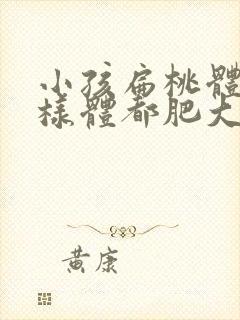 小孩扁桃體
樣體都肥大
黃康